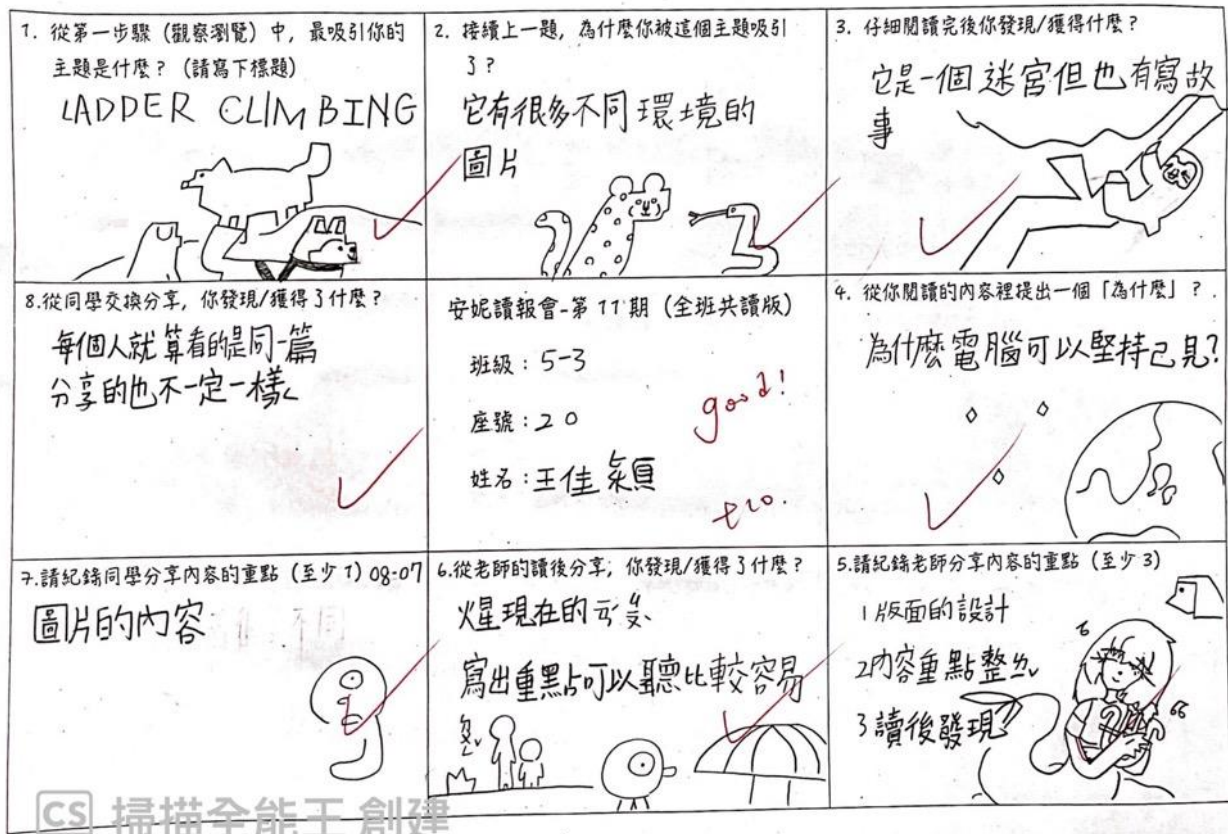 1. 從第一步驟（觀察瀏覽）中，最吸引你的
主題是什麼？（請寫下標題）
LADDER CLIMBING
2. 接續上一題，為什麼你被這個主題吸引
了？
它有很多不同環境的
圖片
3. 仔細閱讀完後你發現/獲得什麼？
它是一個迷宮但也有寫故
事
8.從同學交換分享，你發現/獲得了什麼？
每個人就算看的是同一篇
分享的也不一定一樣
安妮讀報會-第11期（全班共讀版）
班級：5-3
座號：20
姓名：王佳潁
good!
+20.
4. 從你閱讀的內容裡提出一個「為什麼」？.
為什麼電腦可以堅持己見?
7.請紀錄同學分享內容的重點（至少1）08.07
圖片的內容
6.從老師的讀後分享，你發現/獲得了什麼？
火星現在的
寫出重點可以聽比較容易
5.請紀錄老師分享內容的重點（至少3）
1版面的設計
2內容重點整
3讀後發現
CS 掃描全能王 創建